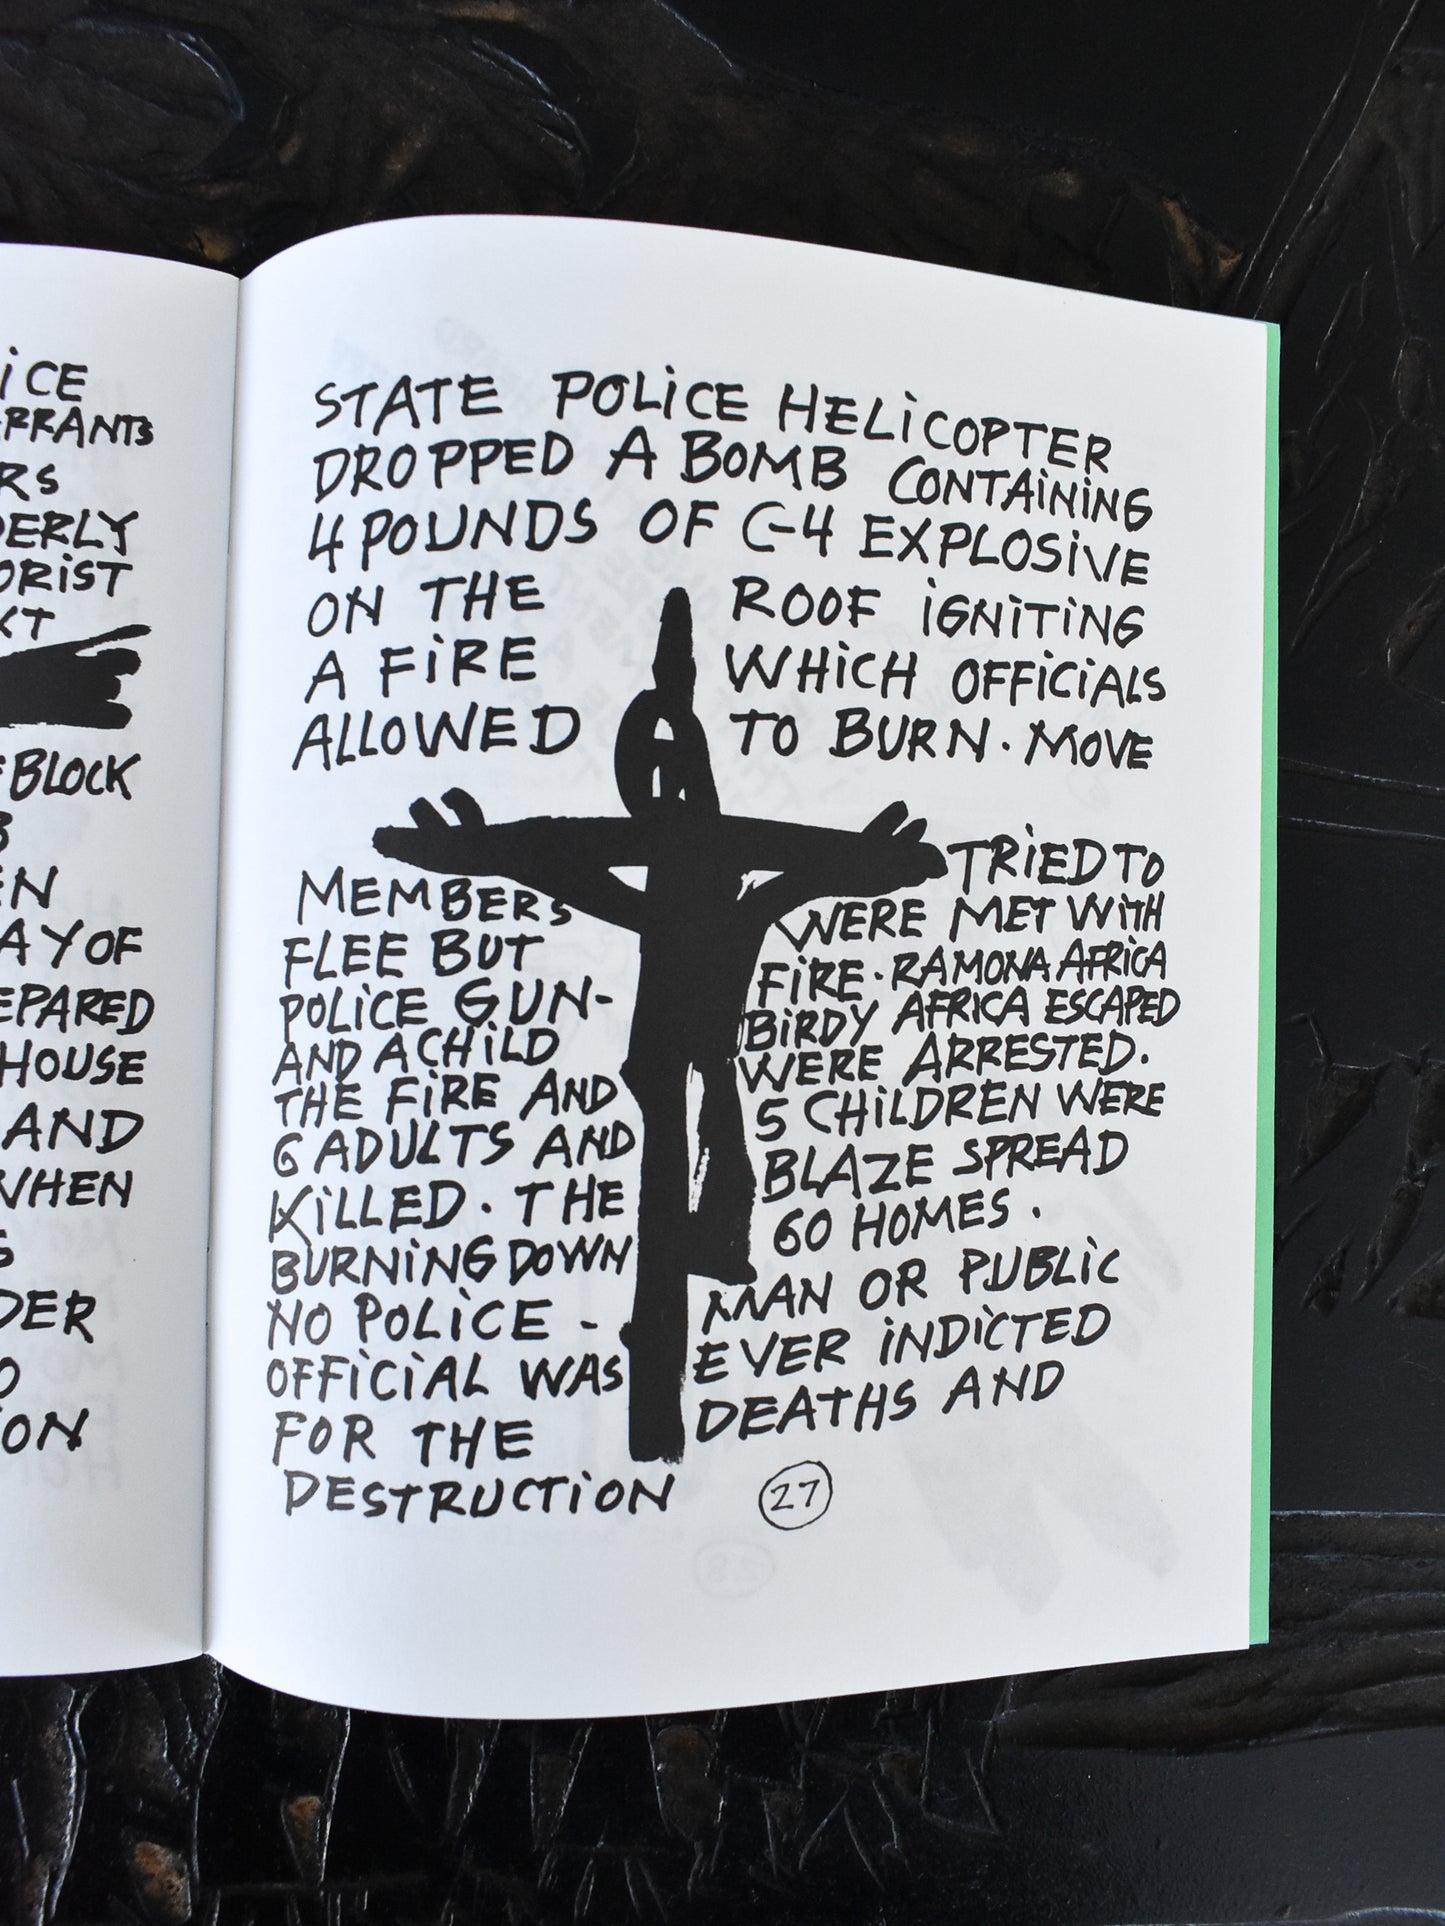 iCE
ARRANTS
RS
DERLY
ORiST
XT
BLOCK
EN
AY OF
EPARED
HOUSE
AND
WHEN
S
DER
O
ION
STATE POLiCE HELiCOPTER
DROPPED A BOMB CONTAiNiNG
4 POUNDS OF C-4 EXPLOSiVE
ON THE ROOF iGNiTiNG
A FiRE WHiCH OFFiCiALS
ALLOWED TO BURN. MOVE
MEMBERS TRiED TO
FLEE BUT WERE MET WiTH
POLiCE GUN- FiRE. RAMONA AFRiCA
AND A CHiLD BiRDY AFRiCA ESCAPED
THE FiRE AND WERE ARRESTED.
6 ADULTS AND 5 CHiLDREN WERE
KiLLED. THE BLAZE SPREAD
BURNiNG DOWN 60 HOMES.
NO POLiCE - MAN OR PUBLiC
OFFiCiAL WAS EVER iNDiCTED
FOR THE DEATHS AND
DESTRUCTiON
27
28